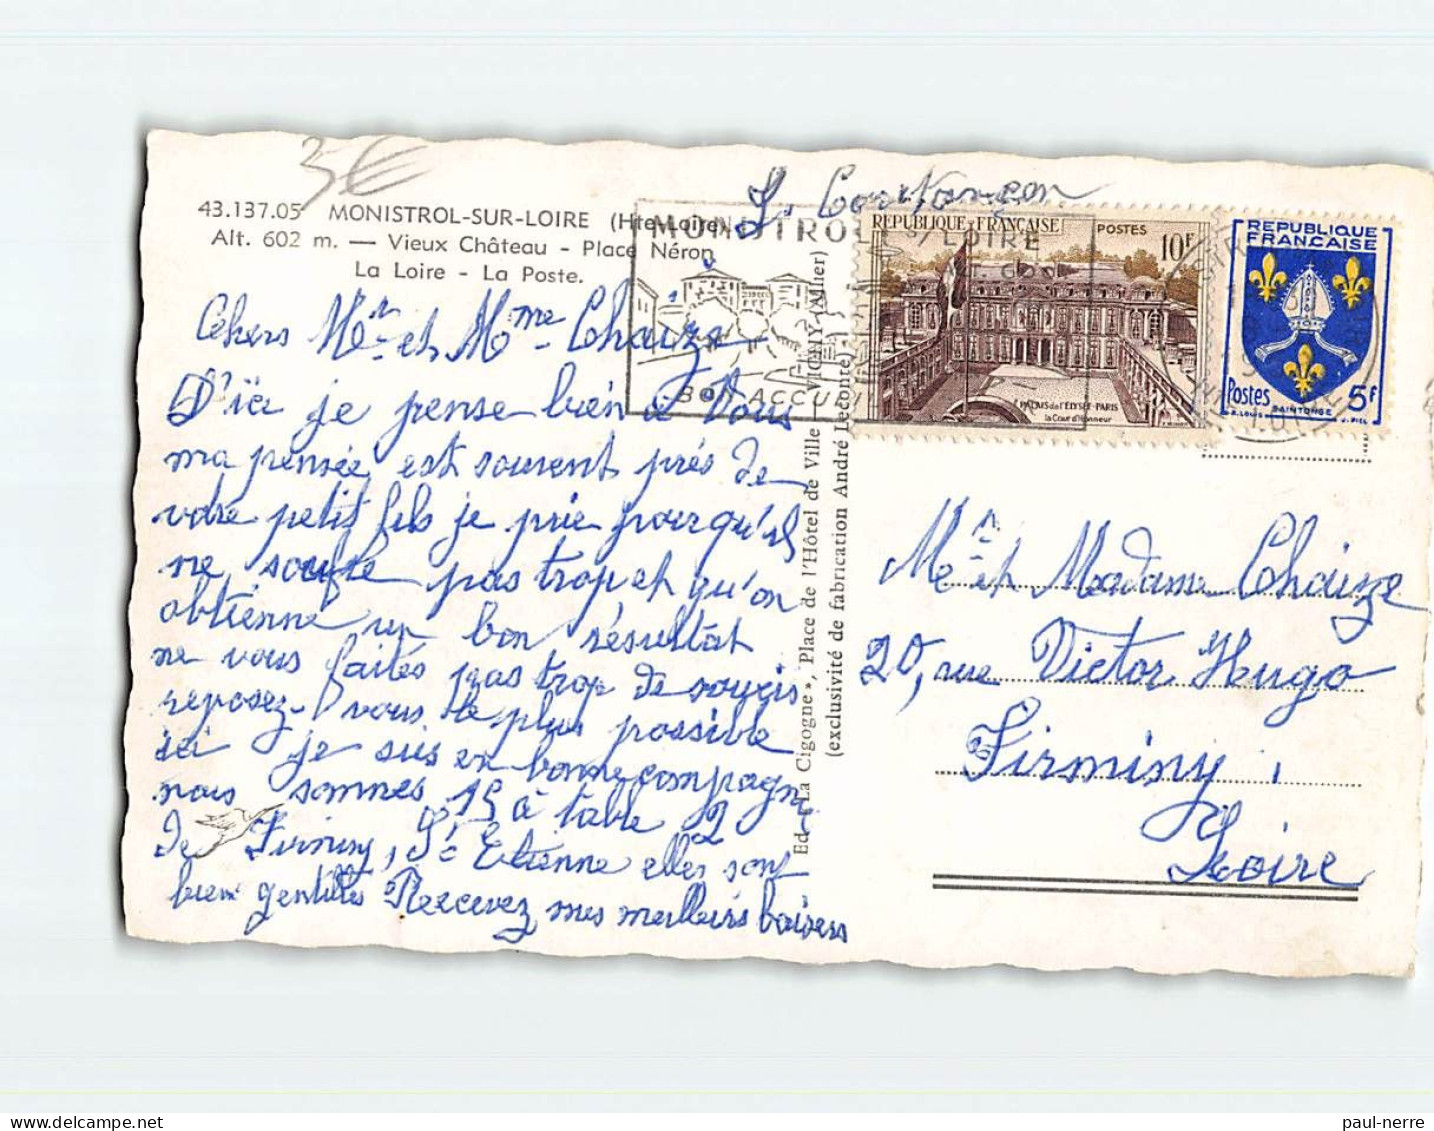 3€
43.137.05 MONISTROL-SUR-LOIRE (Hte-Loire)
Alt. 602 m. — Vieux Château - Place Néron
La Loire - La Poste.
Chers Mr et Mme Chaize
D'ici je pense bien à vous
ma pensée est souvent près de
votre petit fils je prie pour qu'il
ne souffre pas trop et qu'on
obtienne un bon résultat
ne vous faites pas trop de soucis
reposez-vous le plus possible
ici je suis en bonne compagnie
nous sommes 15 à table 2
de Firminy, St Etienne elles sont
bien gentilles Recevez mes meilleurs baisers
Ed. La Cigogne », Place de l'Hôtel de Ville - VICHY (Allier)
(exclusivité de fabrication André Leconte)
MONISTROL S/LOIRE
ALT 600
BON ACCUEIL
REPUBLIQUE FRANÇAISE POSTES 10F
PALAIS de l'ELYSÉE-PARIS
la Cour d'Honneur
REPUBLIQUE
FRANÇAISE
Postes 5F
R. LOUIS SAINTONGE J. PIEL
Mr et Madame Chaize
20, rue Victor Hugo
Firminy,
Loire
paul-nerre